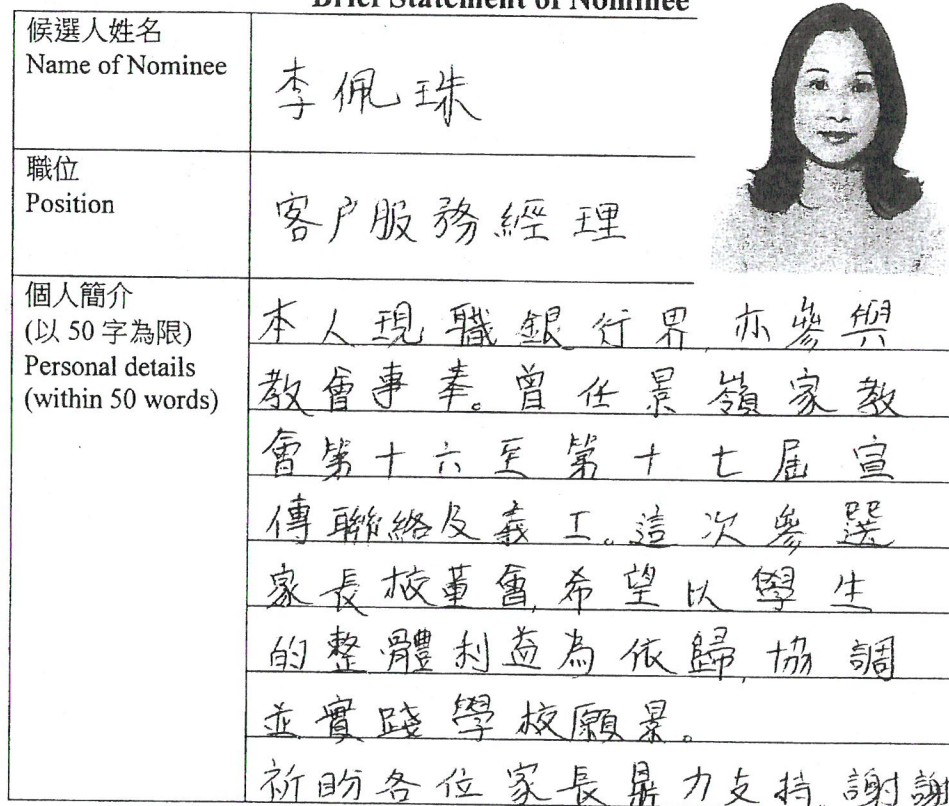 Brief Statement of Nominee
候選人姓名
Name of Nominee
李佩珠
職位
Position
客户服務經理
個人簡介
(以 50 字為限)
Personal details
(within 50 words)
本人現職銀行界,亦參與
教會事奉。曾任景嶺家教
會第十六至第十七屆宣
傳聯絡及義工。這次參選
家長校董會,希望以學生
的整體利益為依歸,協調
並實踐學校願景。
祈盼各位家長鼎力支持,謝謝